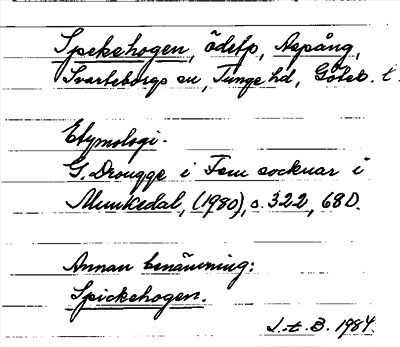 Spekehogen, ödetp, Aspång,
Svarteborgs sn, Tunge hd, Göteb. l.
Etymologi.
G. Drougge i Fem socknar i
Munkedal, (1980), s. 322, 68D.
Annan benämning:
Spickehogen.
1984